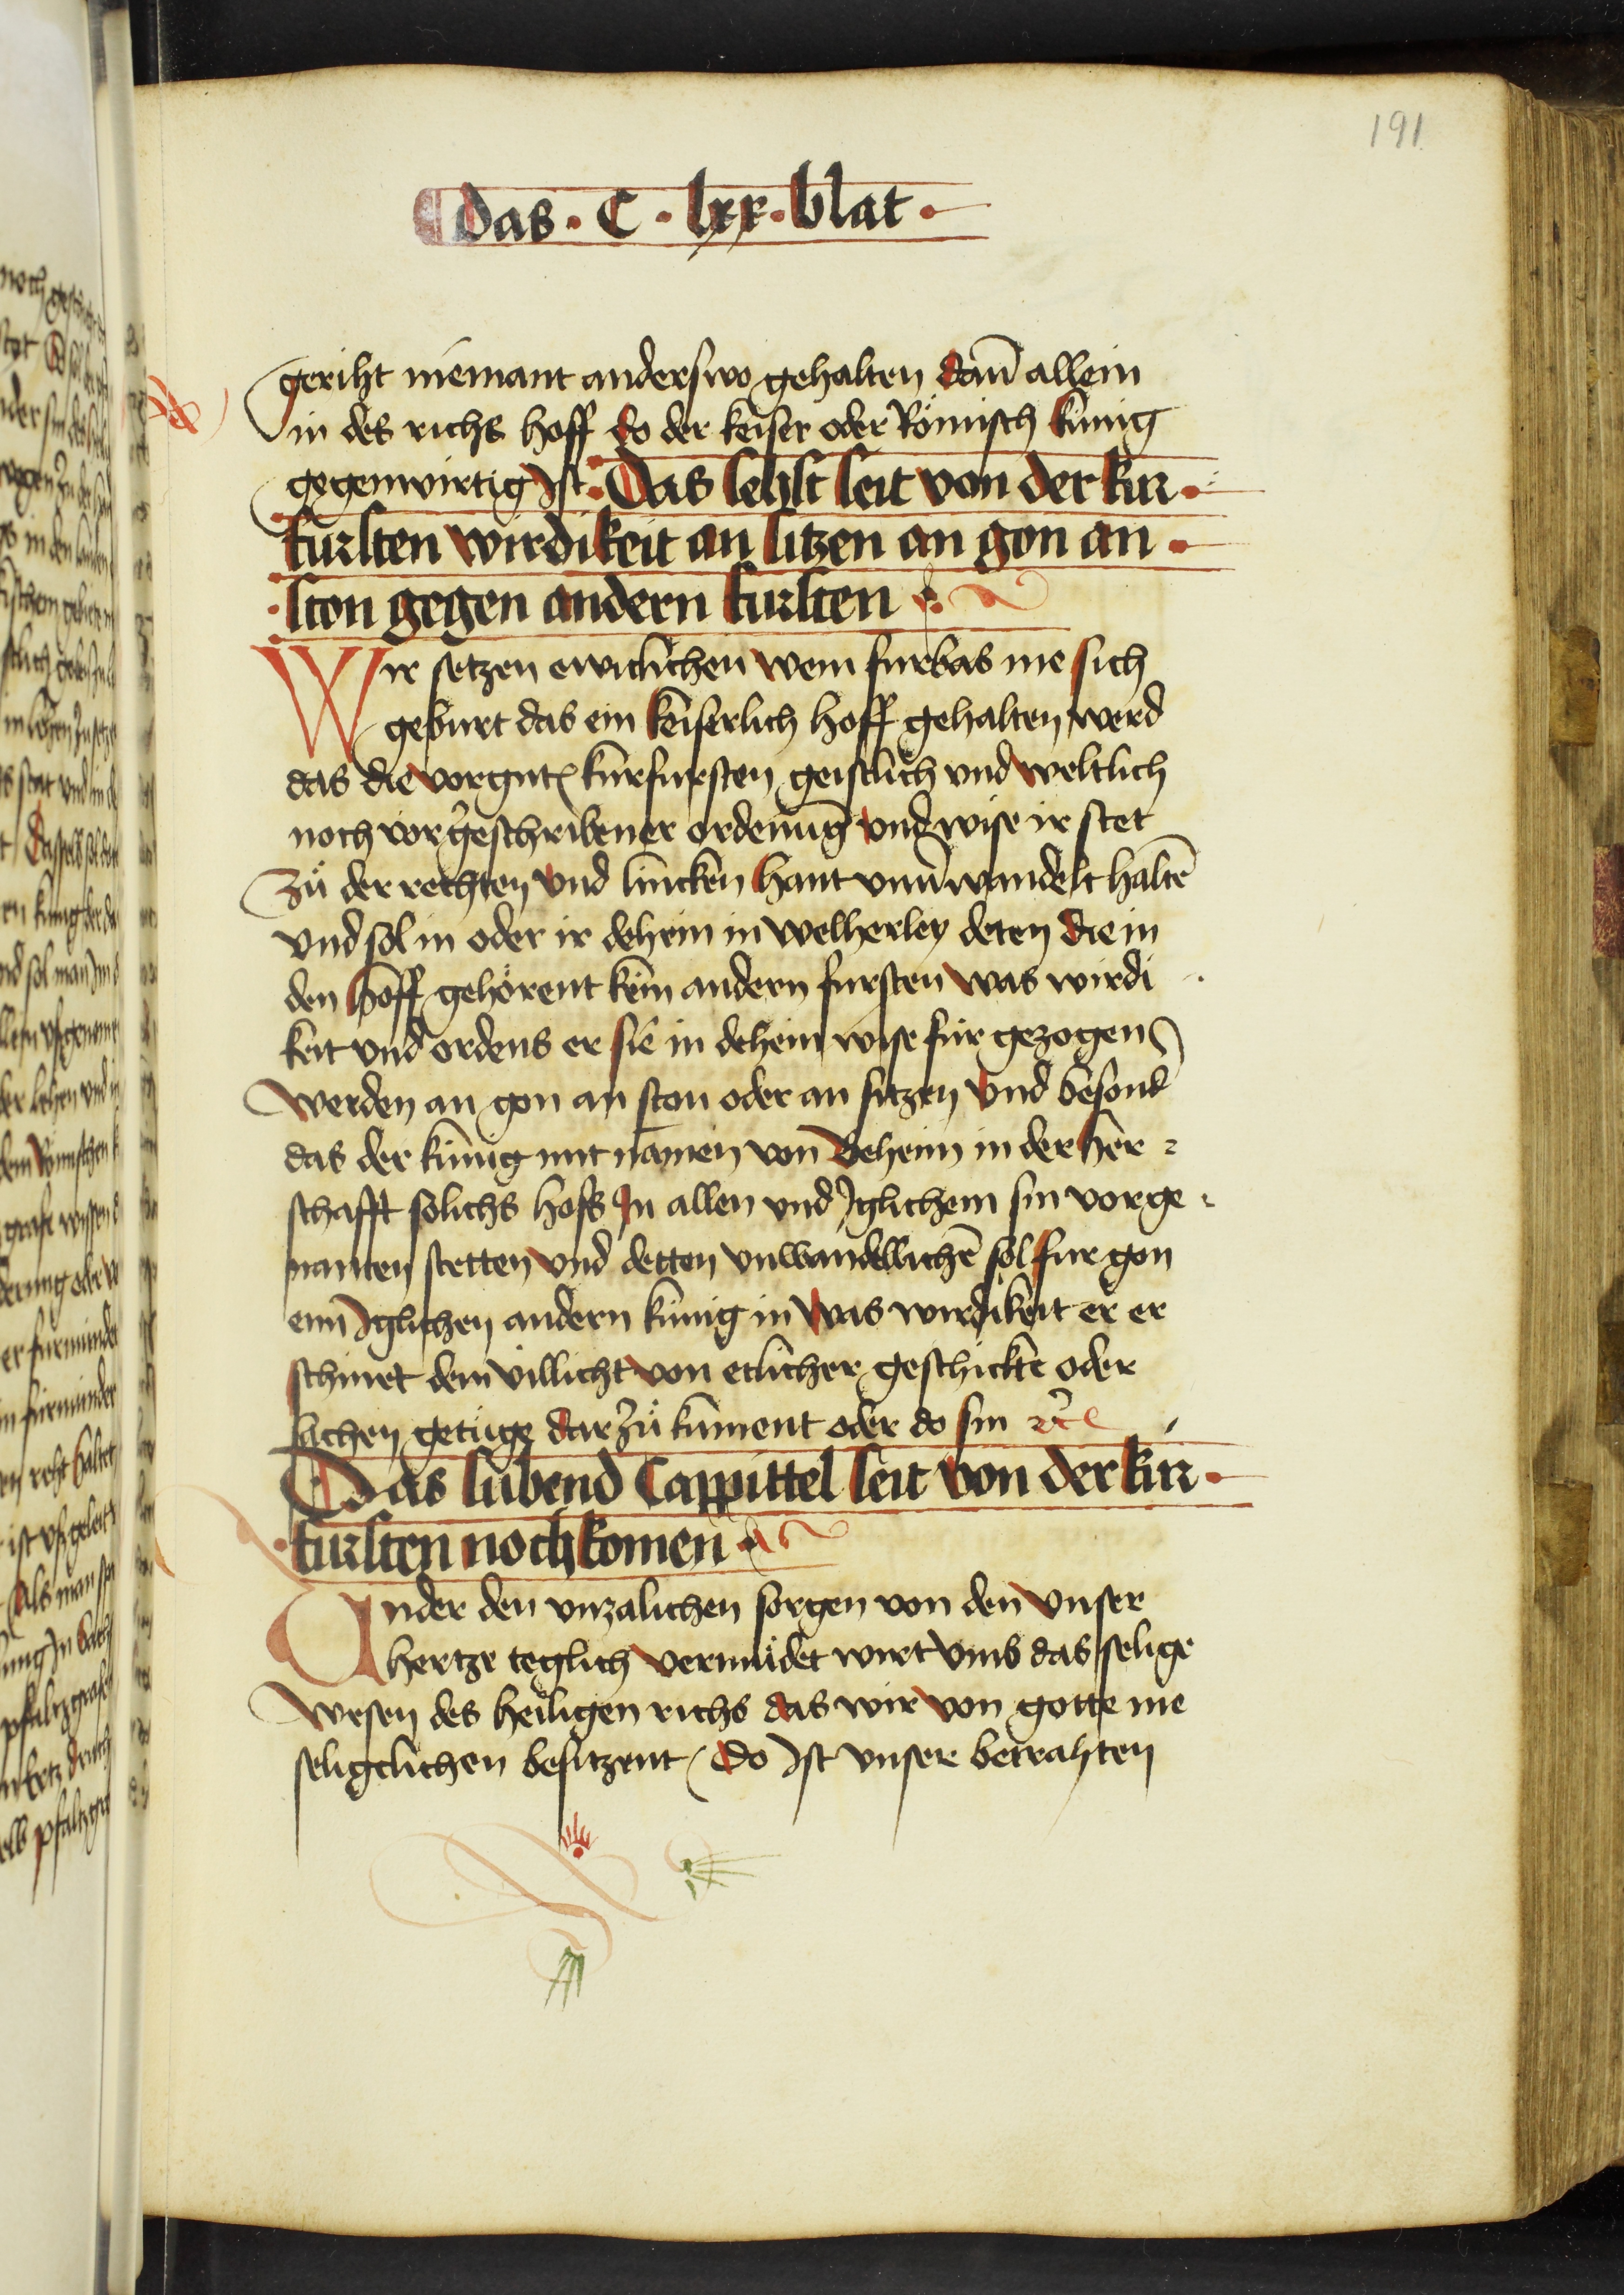 191
das · C · lxx · blat ·
geriht niemant anderswo gehalten dañ allein
in des richs hoff do der keiser oder Römisch künig
gegenwirtig Ist · Das sehst seit von der kur ·
fursten wirdikeit an sitzen an gon an ·
· ston gegen andern fursten ·
Wir setzen ewiclichen wenn furbas me sich
geburt das ein keiserlich hoff gehalten werd
das die vorgnt kurfursten geistlich vnd weltlich
noch vorgeschribener ordenung vnd wise ir stet
Zů der rechten vnd lincken hant vnuwandelt haltē
vnd sol in oder ir dehein in welherley deten die in
den hoff gehörent kein andern fursten was wirdi
keit vnd ordens er sie in dehein wise für gezogen
werden an gon an ston oder an sitzen vnd besond
das der künig mit namen von Beheim in der her
schafft solichs hofs In allen vnd Iglichem sin vorge
nanten stetten vnd detten vnwandellichē sol fur gon
ein Iglichen andern künig in was wirdikeit er er
schinet dem villicht von etlicher geschickte oder
sachen getüge dar zů kument oder do sin ꝛc
Das sübend Cappittel seit von der kur ·
· fursten nochkomen ·
Under den vnzalichen sorgen von den vnser
hertze teglich vermüdet wirt vmb das selige
wesen des heiligen richs das wir von gotte me
seligclichen besitzent / Do Ist vnser betrahten